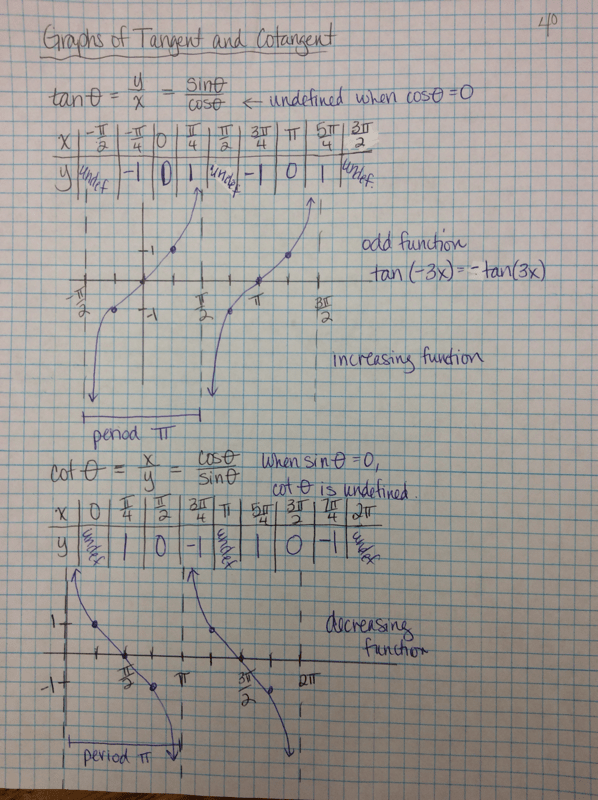 40
Graphs of Tangent and Cotangent
tan θ = y/x = sinθ/cosθ ← undefined when cosθ = 0
x -π/2 -π/4 0 π/4 π/2 3π/4 π 5π/4 3π/2
y undef -1 0 1 undef -1 0 1 undef.
1
odd function
tan (-3x) = -tan(3x)
-π/2 π/2 π 3π/2
-1
increasing function
period π
cot θ = x/y = cosθ/sinθ when sin θ = 0,
cot θ is undefined.
x 0 π/4 π/2 3π/4 π 5π/4 3π/2 7π/4 2π
y undef 1 0 -1 undef 1 0 -1 undef
1
decreasing
function
π/2 π 3π/2 2π
-1
period π